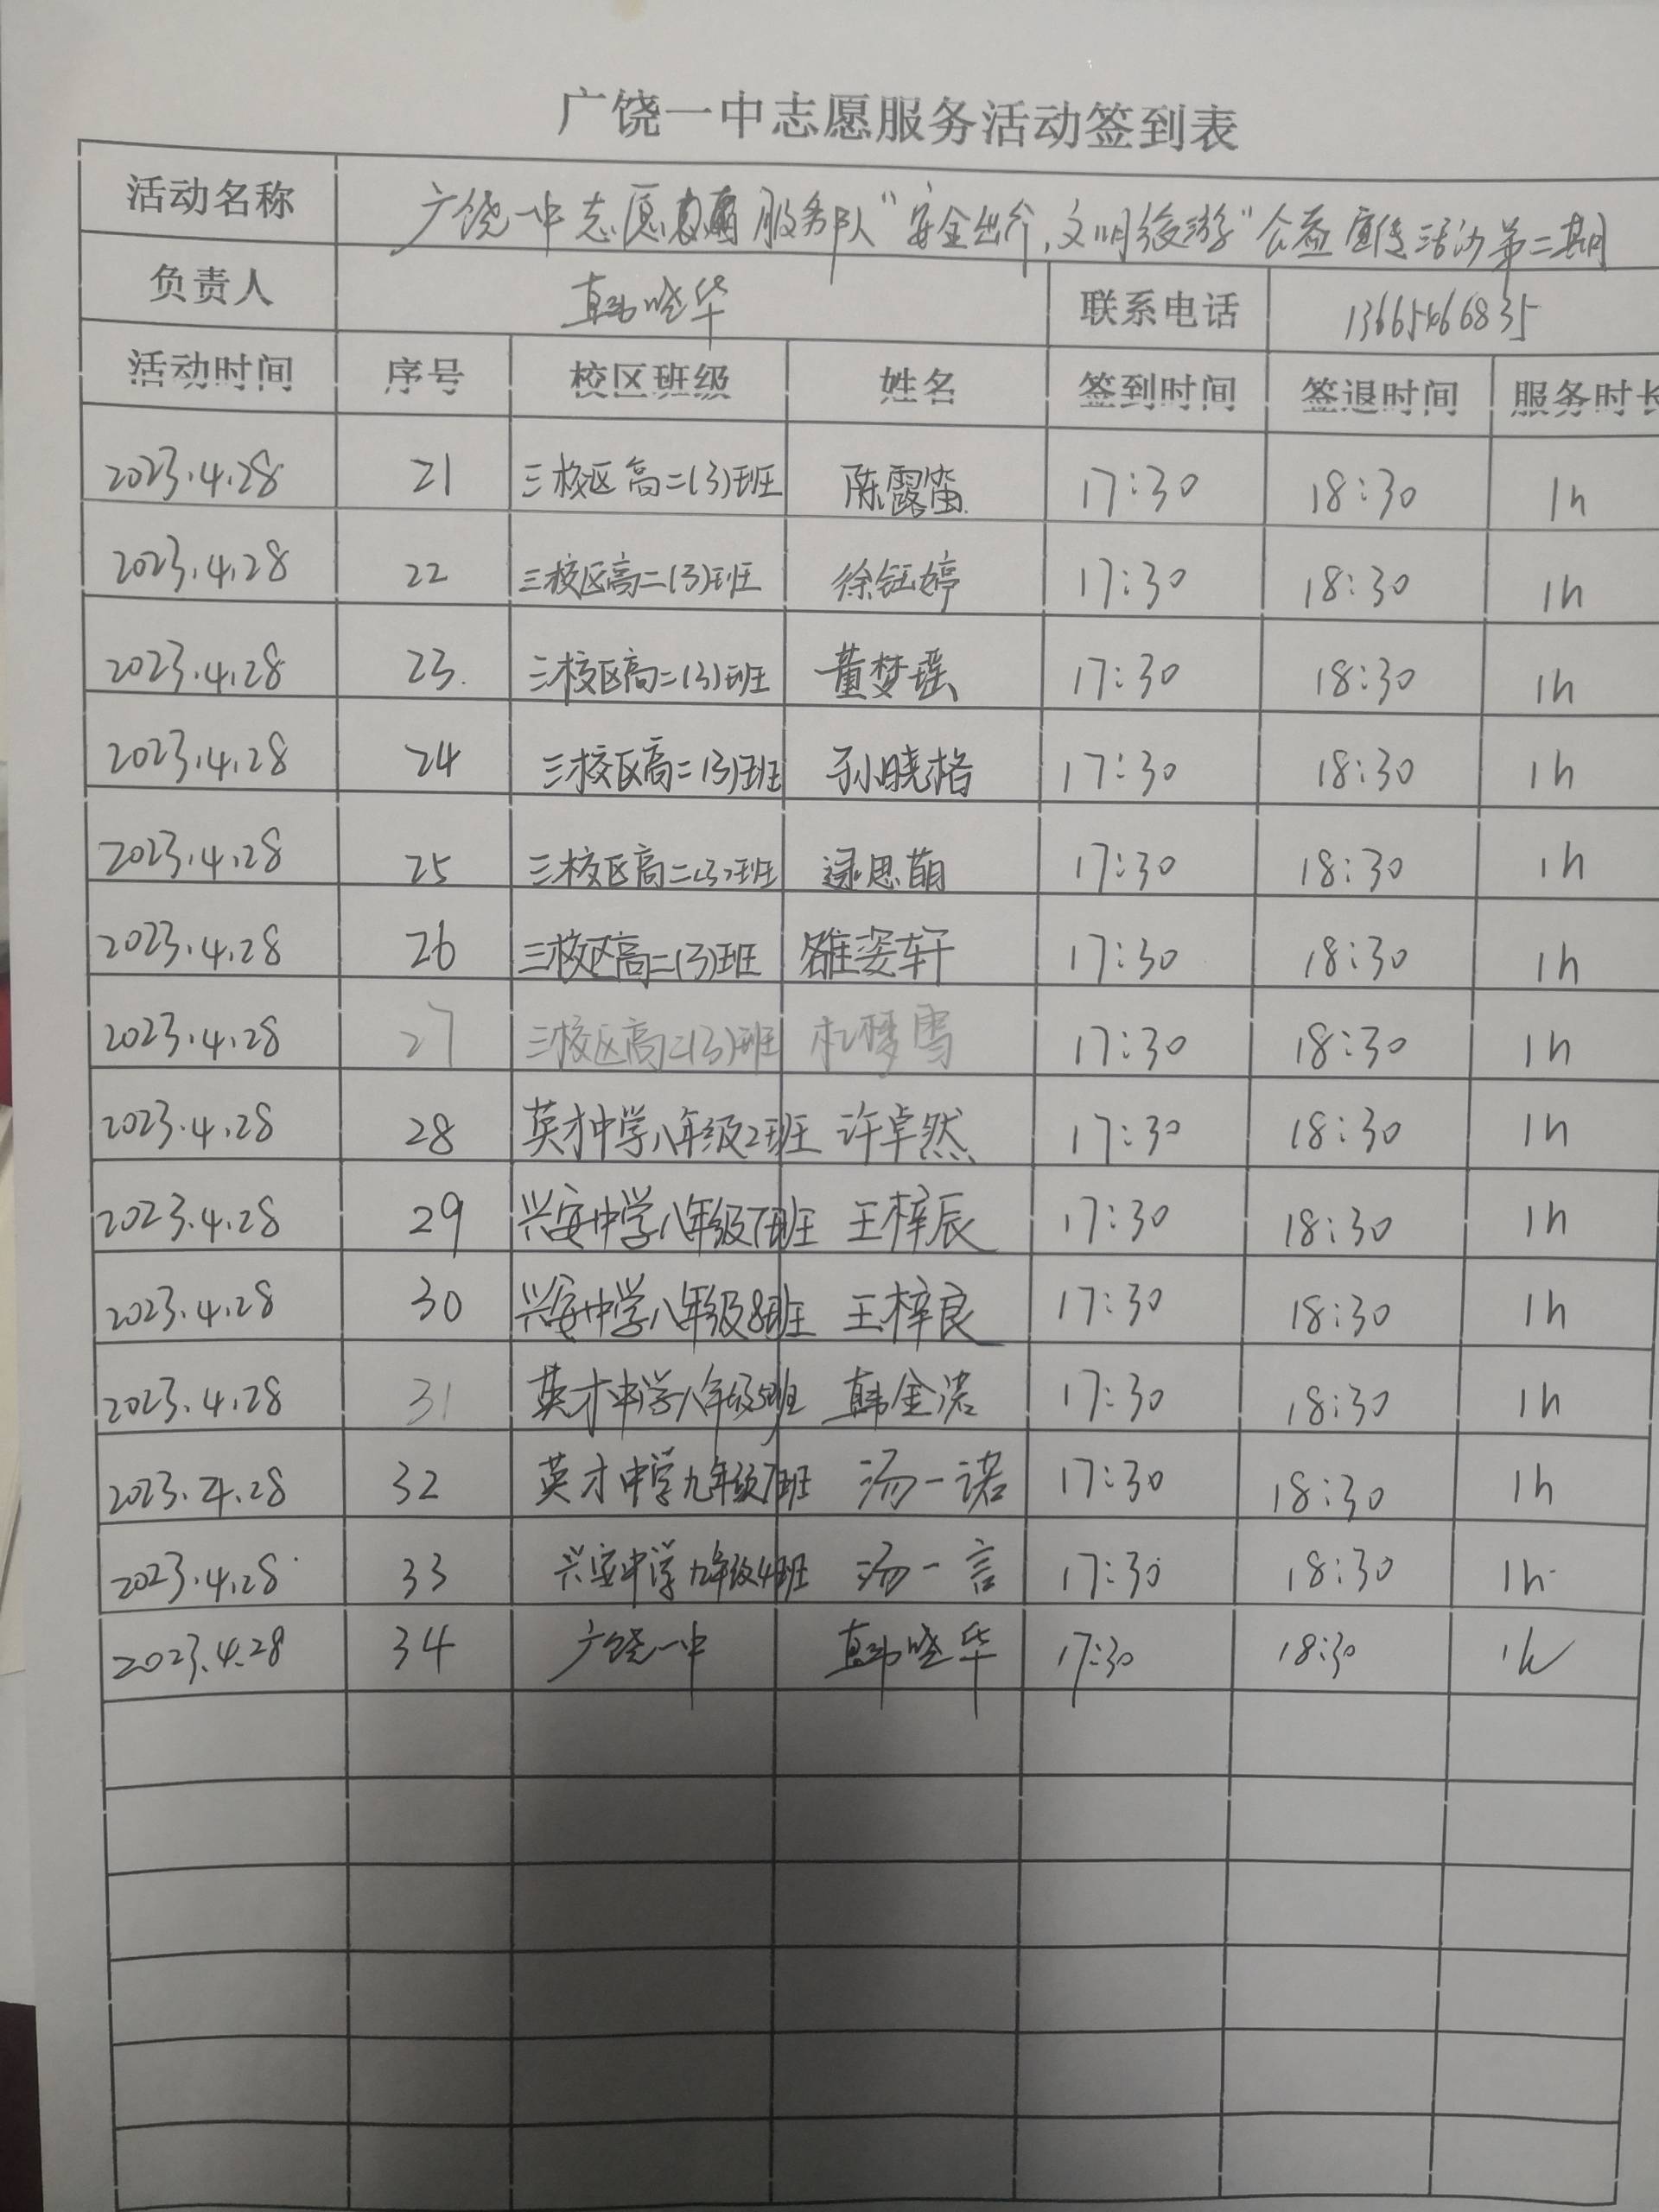 广饶一中志愿服务活动签到表
活动名称 广饶一中志愿服务队“安全出行,文明旅游”公益宣传活动第二期
负责人 韩晓华 联系电话 13665466835
活动时间 序号 校区班级 姓名 签到时间 签退时间 服务时长
2023.4.28 21 三校区高二(3)班 陈露笛 17:30 18:30 1h
2023.4.28 22 三校区高二(3)班 徐钰婷 17:30 18:30 1h
2023.4.28 23. 三校区高二(3)班 董梦瑶 17:30 18:30 1h
2023.4.28 24 三校区高二(3)班 孙晓格 17:30 18:30 1h
2023.4.28 25 三校区高二(3)班 逯思萌 17:30 18:30 1h
2023.4.28 26 三校区高二(3)班 雒姿轩 17:30 18:30 1h
2023.4.28 27 三校区高二(3)班 杜梦雪 17:30 18:30 1h
2023.4.28 28 英才中学八年级2班 许卓然 17:30 18:30 1h
2023.4.28 29 兴安中学八年级7班 王梓辰 17:30 18:30 1h
2023.4.28 30 兴安中学八年级8班 王梓良 17:30 18:30 1h
2023.4.28 31 英才中学八年级5班 韩金诺 17:30 18:30 1h
2023.4.28 32 英才中学九年级7班 汤一诺 17:30 18:30 1h
2023.4.28 33 兴安中学九年级4班 汤一言 17:30 18:30 1h
2023.4.28 34 广饶一中 韩晓华 17:30 18:30 1h